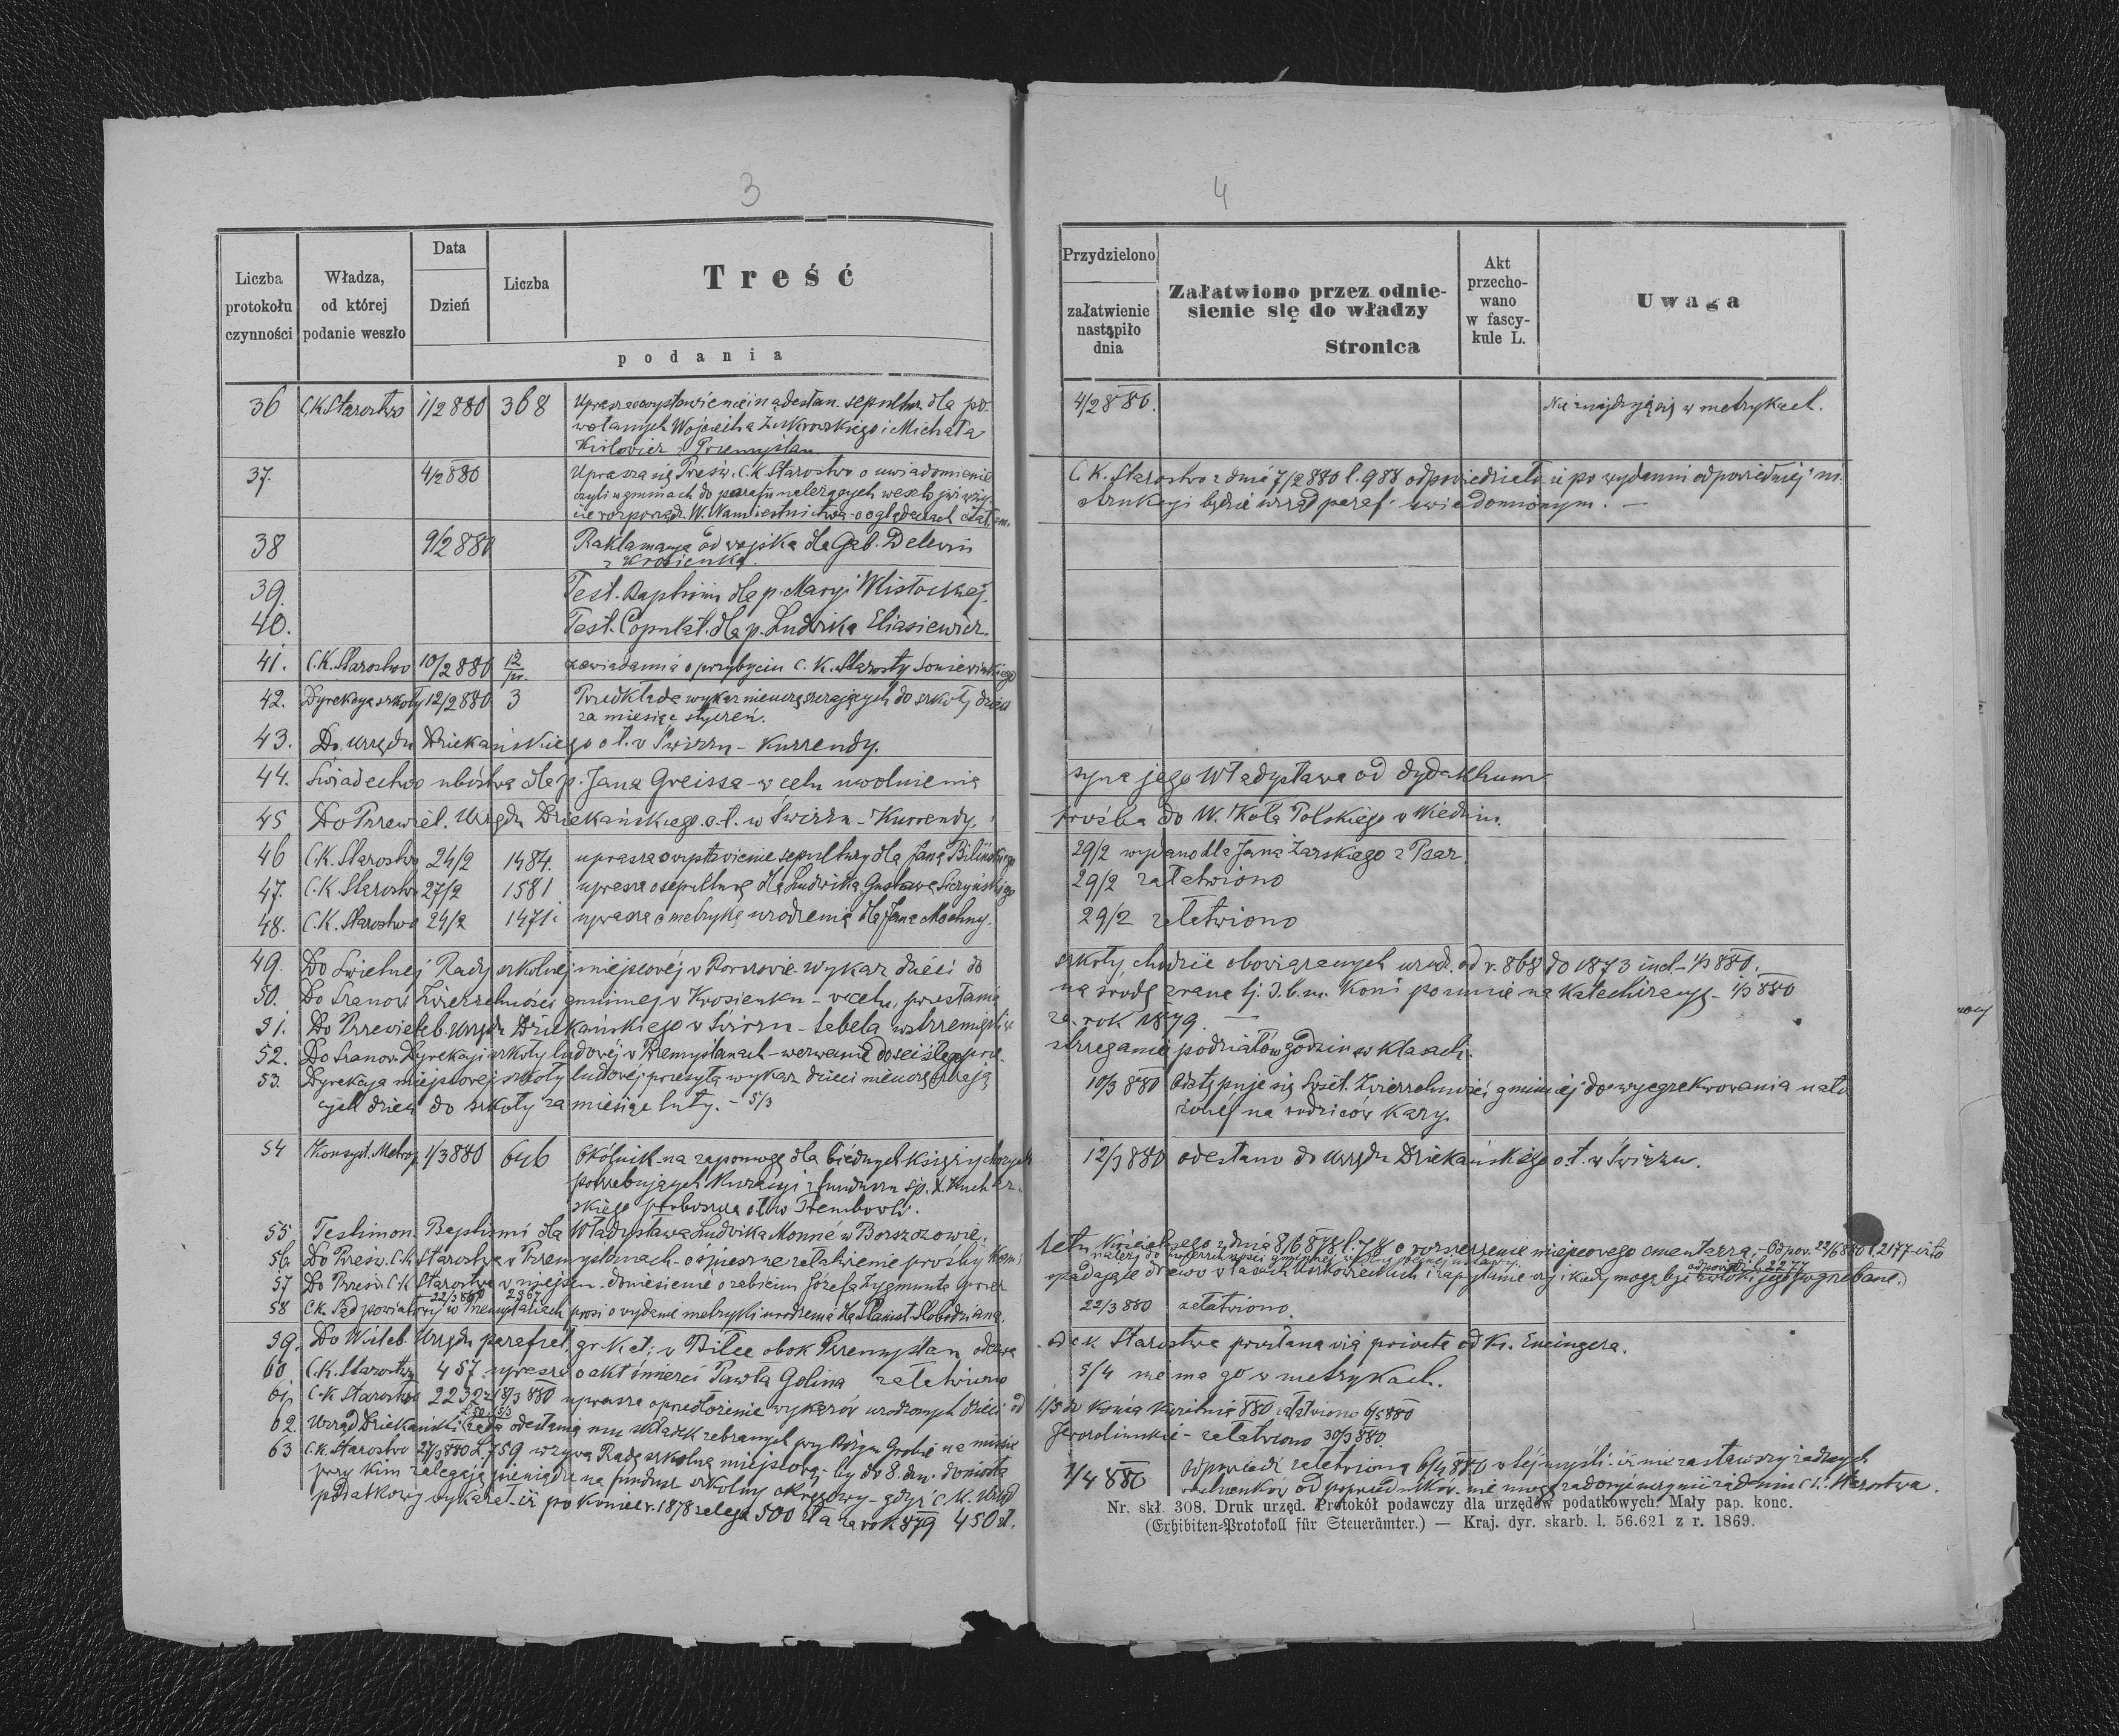 3
Liczba protokołu czynności
Władza, od której podanie weszło
Data
Dzień
Liczba
Treść
podania
36 C.K Starostwo 1/2 880 368 Uprasza o wystawienie i nadesłan. sepultur dla po-
wołanych Wojciecha Żukrowskiego i Michała
z Przemyślan
37. 4/2 880 Uprasza się Prześw. C.K. Starostwo o uwiadomienie
czyli w gminach do parafii należących weszło już w życie
rozporządz. W. Namiestnictwa o oglądaczach
38 9/2 880 Reklamacya od wojska dla Gab.
z Krosienka.
39. Test. Baptismi dla p. Maryi Wisłockiej.
40. Test. Copulat. dla p. Ludwika Eliasiewicz.
41. C.K. Starostwo 10/2 880 12/pr. zawiadamia o przybyciu C. K. Starosty
42. Dyrekcya szkoły 12/2 880 3 Przedkłada wykaz nieuczęszczających do szkoły dzieci
za miesiąc styczeń.
43. Do Urzędu Dziekańskiego o. ł. w Świrzu – Kurrendy.
44. Świadectwo ubóstwa dla p. Jana Greissa – w celu uwolnienia
45 Do Przewiel. Urzędu Dziekańskiego o. ł. w Świrzu – Kurrendy.
46 C.K. Starostwo 24/2 1484. uprasza o wystawienie sepultury dla Jana Bilińskiego
47. C.K Starostwo 27/2 1581 uprasza o sepulturę dla Ludwika Gustawa
48. C.K. Starostwo 24/2 1471 uprasza o metrykę urodzenia dla Jana Mochny.
49. Do Świetnej Rady szkolnej miejscowej w – wykaz dzieci do
50. Do Szanow. Zwierzchności gminnej w Krosienku – w celu przesłania
51. Do Przewieleb. Urzędu Dziekańskiego w Świrzu – tabela
52. Do Szanow. Dyrekcyi szkoły ludowej w Przemyślanach – wezwanie do ścisłego prze-
53. Dyrekcya miejscowej szkoły ludowej przesyła wykaz dzieci nieuczęszczają
cych dzieci do szkoły za miesiąc luty. – 5/3
54 Konsyst. Metrop. 1/3 880 646 Okólnik – na zapomogę dla biednych księży chorych
potrzebujących kuracyi z funduszu śp. X. Kuchar-
skiego proboszcza o ł. w Trembowli.
55. Testimon. Baptismi dla Władysława Ludwika Monné w Borszczowie.
56. Do Prześw. C.k. Starostwa w Przemyślanach – o spieszne załatwienie prośby Komi
57 Do Prześw. C.K Starostwa w miejscu – doniesienie o zabiciu Józefa Zygmunta przez
22/3 880 2967
58 C.k. Sąd powiatowy w Przemyślanach prosi o wydanie metryki urodzenia dla Stanisł. Słobodziana.
59. Do Wieleb. Urzędu parafial. gr. kat. w Bilce obok Przemyślan
60. C.K. Starostwo 457 uprasza o akt śmierci Pawła Golina załatwiono
61. C.K Starostwo 2232 z 18/3 880 uprasza o przedłożenie wykazów urodzonych dzieci od
62. Urząd Dziekański żąda odesłania mu składek zebranych przy Bożym Grobie na misie
63 C.k. Starostwo 27/3 880 L. 759 wzywa Radę szkolną miejscową – by do 8. dni doniosła
przy kim zalegają pieniądze na fundusz szkolny okręgowy – gdyż C. K. Urząd
podatkowy wykazał – iż po koniec r. 1878 zalega 500 zł a za rok 879 450 zł.
4
Przydzielono
załatwienie nastąpiło dnia
Załatwiono przez odniesienie się do władzy
Stronica
Akt przechowano w fascykule L.
Uwaga
4/2 880. Nie znajdują się w metrykach.
C. K. Starostwo z dnia 7/2 880 l. 988 odpowiedziało iż po wydaniu odpowiedniej in-
strukcyi będzie urząd paraf. uwiadomionym. –
syna jego Władysława od dydaktrum
prośba do W. Koła Polskiego w Wiedniu.
29/2 wydano dla Jana Żarskiego z Psar.
29/2 załatwiono
29/2 załatwiono
szkoły chodzić obowiązanych urodz. od r. 868 do 1873 incl. – 1/3 880.
na środę zrana tj. 3. b. m. Koni po mnie na Katechizacyę – 1/3 880
za rok 1879. –
strzegania podziałów godzin w klasach.
10/3 880 Odstępuje się Świet. Zwierzchności gminnej do wyegzekwowania nało
żonej na rodziców kary.
12/3 880 odesłano do Urzędu Dziekańskiego o. ł. w Świrzu.
tetu Kościelnego z dnia 8/6 878 l. 78 o rozszerzenie miejscowego cmentarza. – Odpow. 22/6 880 l. 2177 – iż to
należy do zwierzchności gminnej
odpowiedź 2277
spadające drzewo w lasach Uszkowieckich i zapytanie czy i kiedy mogą być zwłoki jego pogrzebane.
22/3 880 załatwiono.
od c k Starostwa
5/4 nie ma go w metrykach.
1/3 do końca kwietnia 880 załatwiono 6/5 880
Jerozolimskie – załatwiono 30/3 880.
1/4 880 Odpowiedź załatwiona 6/4 880 w tej myśli – iż nie zastawszy żadnych
rachunków od poprzedników – nie mogę zadosyć uczynić żądaniu C. k. Starostwa.
Nr. skł. 308. Druk urzęd. Protokół podawczy dla urzędów podatkowych. Mały pap. konc.
(Exhibiten-Protokoll für Steuerämter.) — Kraj. dyr. skarb. l. 56.621 z r. 1869.